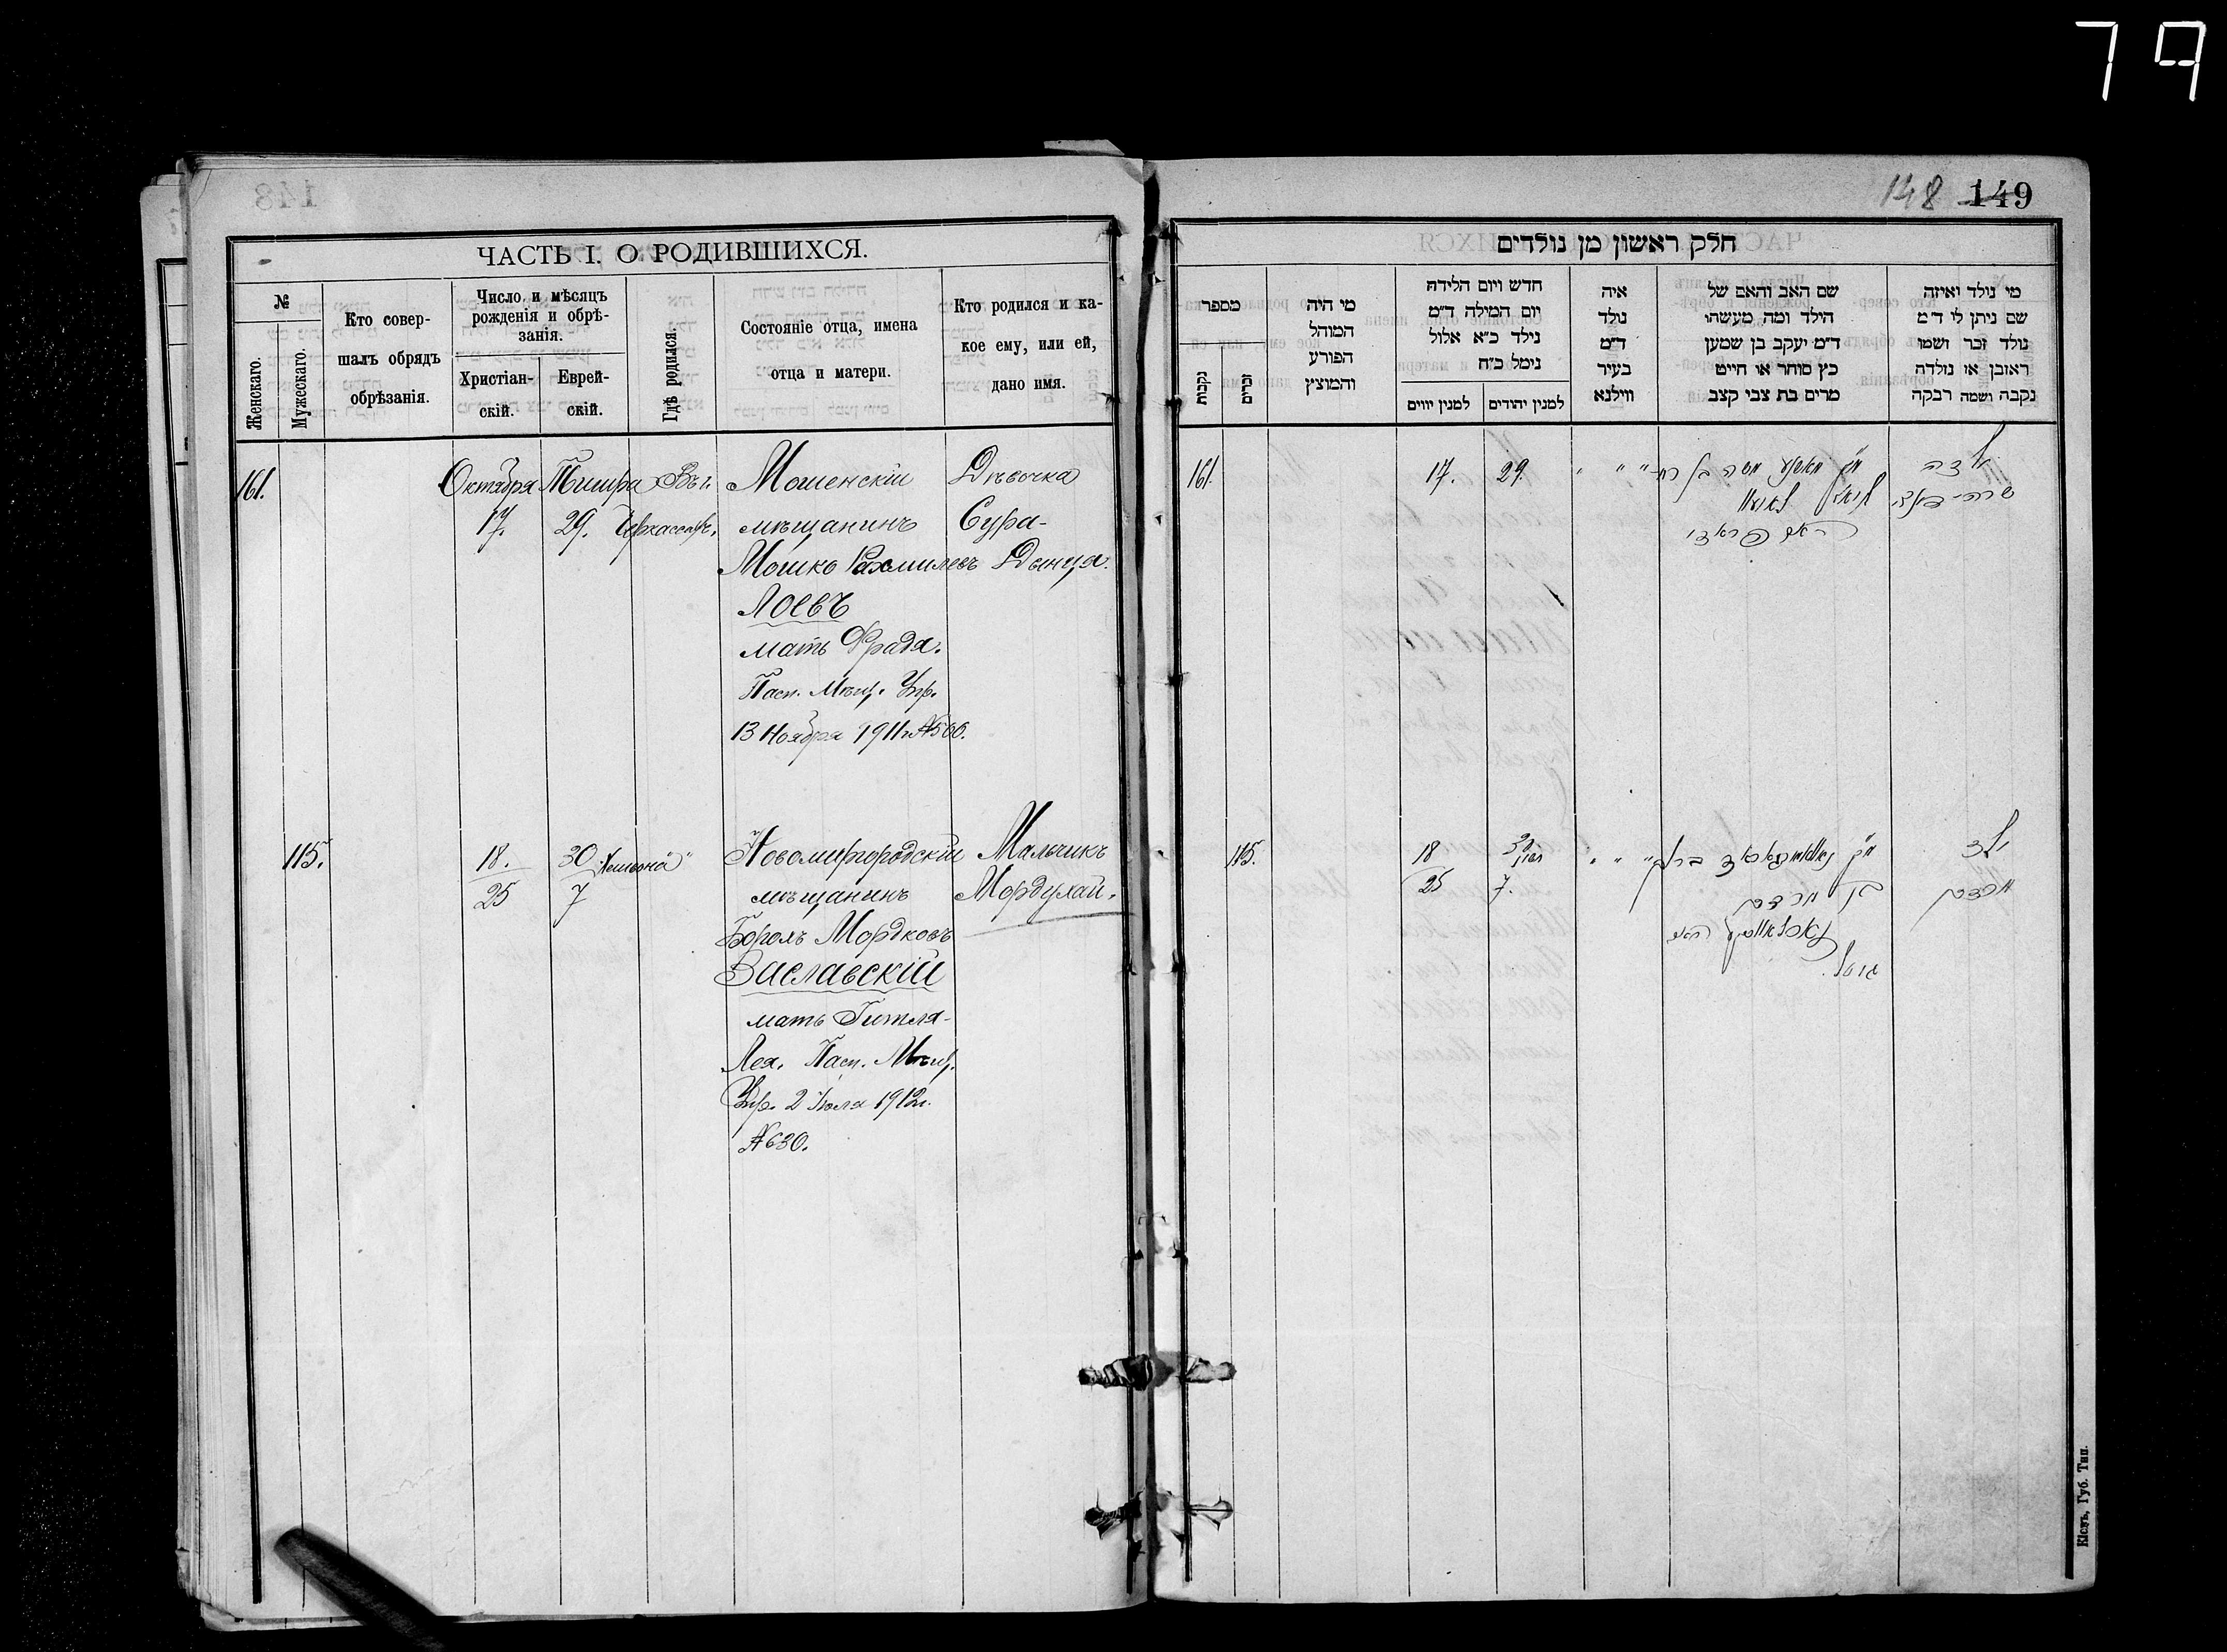 79
148 149
ЧАСТЬ I. О РОДИВШИХСЯ.
№
Женскаго.
Мужескаго.
Кто совер-
шалъ обрядъ
обрѣзанія.
Число и мѣсяцъ
рожденія и обрѣ-
занія.
Христіан-
скій.
Еврей-
скій.
Гдѣ родился.
Состояніе отца, имена
отца и матери.
Кто родился и ка-
кое ему, или ей,
дано имя.
161.
Октября
17.
Тишра
29.
Въ г.
Черкассахъ.
Мошенскій
мѣщанинъ
Мошко Рахмилевъ
Лоевъ
мать Фрадя.
Пасп. Мѣщ. Упр.
13 Ноября 1911 г. №500.
Дѣвочка
Сура-
Дынця.
115.
18.
25
30
7
Новомиргородскій
мѣщанинъ
Борохъ Мордковъ
Заславскій
мать Гитля-
Лея. Пасп. Мѣщ.
Упр. 2 Іюля 1912 г.
№630.
Мальчикъ
Мордухай.
חלק ראשון מן נולדים
מספר
נקבות
זכרים
מי היה
המוהל
הפורע
והמוצץ
חדש ויום הלידה
יום המילה ד״מ
נילד כ״א אלול
נימל כ״ח
למנין יווים
למנין יהודים
איה
נולד
ד״מ
בעיר
ווילנא
שם האב והאם של
הילד ומה מעשהו
ד״מ יעקב בן שמען
כץ סוחר או חייט
מרים בת צבי קצב
מי נולד ואיזה
שם ניתן לו ד״מ
נולד זכר ושמו
ראובן או נולדה
נקבה ושמה רבקה
161.
17.
29.
ילדה
115.
18
25
30
חשון
7.
בן מרדכי
גיטל
ילד
מרדכי
Кіевъ, Губ. Тип.